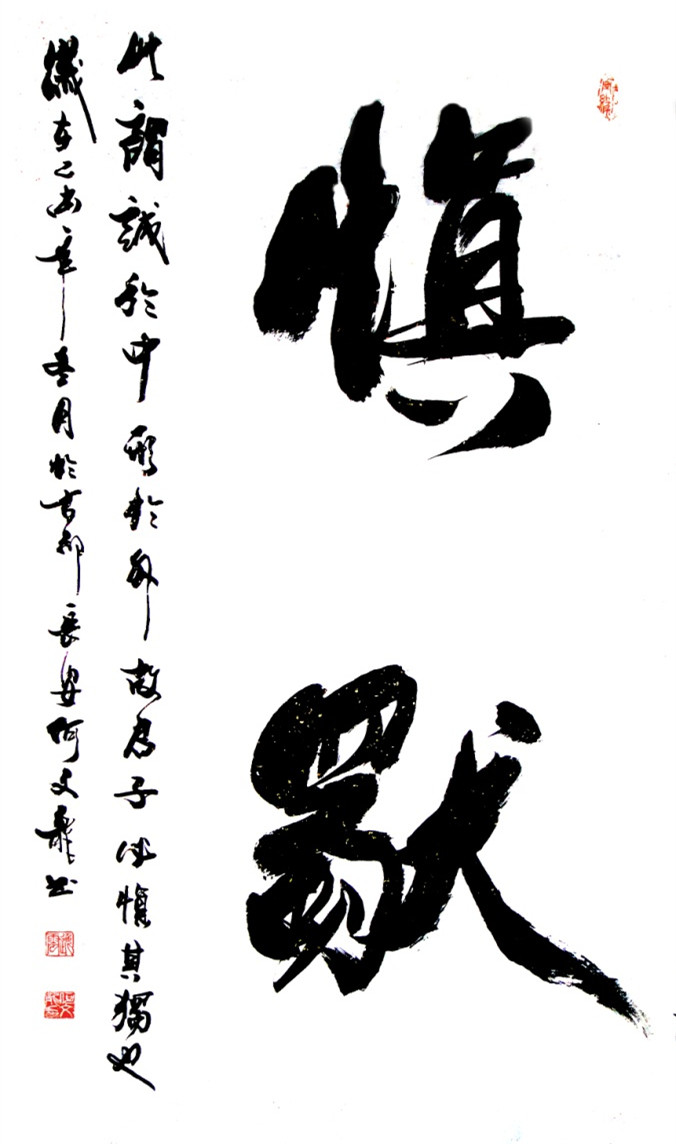 慎獨
此謂誠於中形於外故君子必慎其獨也
歲在年月於古都長安何文龍書